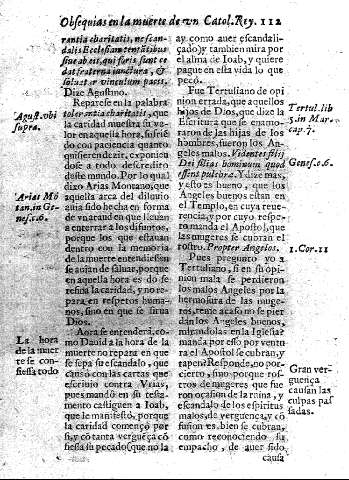 Obsequias en la muerte de vn Catol. Rey. 112
rantia charitatis, ne scan-
dalis Ecclesiam tentatibus
sine ab eis, qui foris sunt ce
dat fraterna iunctura, &
soluatur vinculum pacis.
Dize Agustino.
Reparese en la palabra
tolerantia charitatis, que
la caridad muestra su va-
lor en aquella hora, sufriē
do con paciencia quanto
quisieren dezir, exponien
dose a todo descredito
deste mundo. Por lo qual
dixo Arias Montano, que
aquella arca del diluuio
auia sido hecha en forma
de vn ataud en que lleuan
a enterrar a los difuntos,
porque los que estauan
dentro con la memoria
de la muerte entendiessen
se auian de saluar, porque
en aquella hora es do re-
fina la caridad, y no re-
para en respetos huma-
nos, sino en que se sirua
Dios.
Aora se entenderá, co-
mo Dauid a la hora de la
muerte no repara en que
se sepa su escandalo, que
causó con las cartas que
escriuio contra Vrias,
pues mandó en su testa-
mento castiguen a Ioab,
que le manifestó, porque
la caridad començó por
si, y cō tanta verguēça cō
fiessa su pecado (que no la
Agust. vbi
supra.
Arias Mō
tan. in Ge-
nes. c. 6.
La hora
de la muer
te se con-
fiessa todo
ay como auer escandali-
çado) y tambien mira por
el alma de Ioab, y quiere
pague en esta vida lo que
pecó.
Fue Tertuliano de opi-
nion errada, que aquellos
hijos de Dios, que dize la
Escritura que se enamo-
raron de las hijas de los
hombres, fueron los An-
geles malos. Videntes filij
Dei filias hominum quod
essent pulchra. Y dize mas,
y esto es bueno, que los
Angeles buenos estan en
el Templo, en cuya reue-
rencia, y por cuyo respe-
to manda el Apostol, que
las mugeres se cubran el
rostro. Propter Angelos.
Pues pregunto yo a
Tertuliano, si en su opi-
nion mala se perdieron
los malos Angeles por la
hermosura de las muge-
res, teme acaso no se pier
dan los Angeles buenos,
mirandolas en la Iglesia?
manda por esso por ventu
ra el Apostol se cubran, y
tapen? Responde, no por-
cierto, sino porque ros-
tros de mugeres que fue
ron ocasion de la ruina, y
escandalo de los espiritus
malos, de verguença, y cō
fusion es, bien se cubran,
como reconociendo su
empacho, de auer sido
causa
Tertul. lib
5. in Mar.
cap. 7.
Genes. c. 6.
1. Cor. 11
Gran ver-
guença
causan las
culpas pas
sadas.